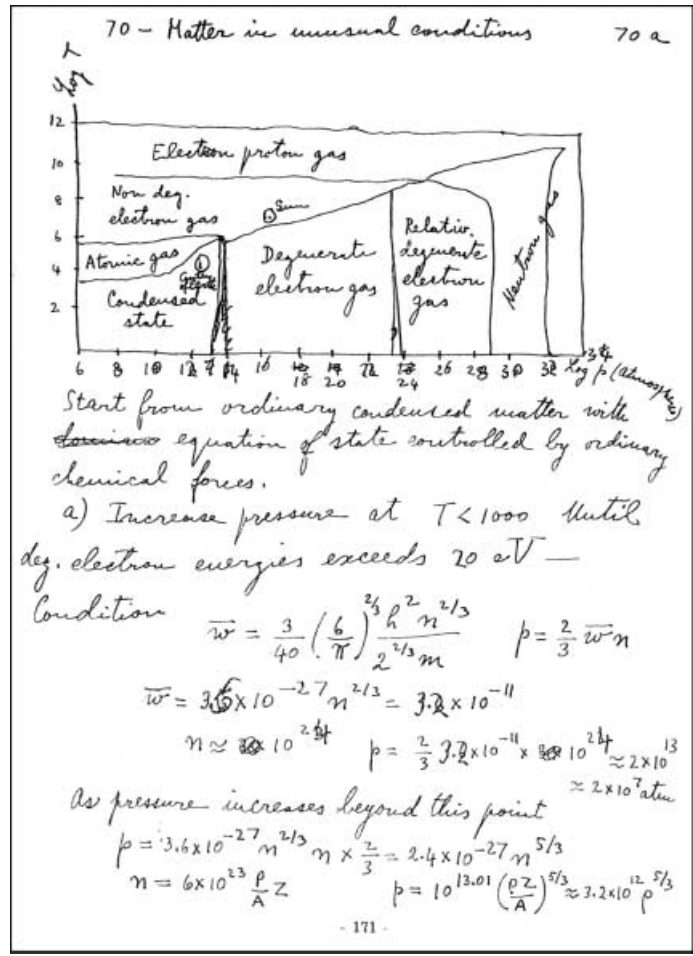 70 - Matter in unusual conditions 70 a
Log T
12
10
8
6
4
2
Electron proton gas
Non deg.
electron gas
Atomic gas
Condensed
state
Sun
Degenerate
electron gas
Relativ.
degenerate
electron
gas
Neutron gas
6 8 10 12 14 16 18 20 22 24 26 28 30 32 34 Log p (atmospheres)
Start from ordinary condensed matter with
equation of state controlled by ordinary
chemical forces.
a) Increase pressure at T<1000 Until
deg. electron energies exceeds 20 eV —
Condition
w̄ = 3/40 (6/π)^2/3 h^2 n^2/3 / 2^2/3 m p = 2/3 w̄ n
w̄ = 3.6 x 10^-27 n^2/3 = 3.2 x 10^-11
n ≈ 10^24 p = 2/3 3.2 x 10^-11 x 10^24 ≈ 2 x 10^13
≈ 2 x 10^7 atm
As pressure increases beyond this point
p = 3.6 x 10^-27 n^2/3 n x 2/3 = 2.4 x 10^-27 n^5/3
n = 6 x 10^23 ρ/A Z p = 10^13.01 (ρZ/A)^5/3 ≈ 3.2 x 10^12 ρ^5/3
- 171 -